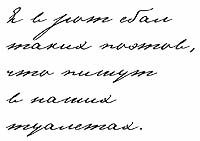 Я в рот ебал
таких поэтов,
что пишут
в наших
туалетах.